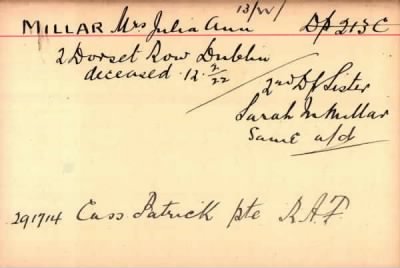 13/22/
MILLAR Mrs Julia Ann Dp 213 C
2 Dorset Row Dublin
deceased 12.2/22
2nd Df Sister
Sarah M Millar
Same a/d
291714 Cass Patrick pte R.A.F.